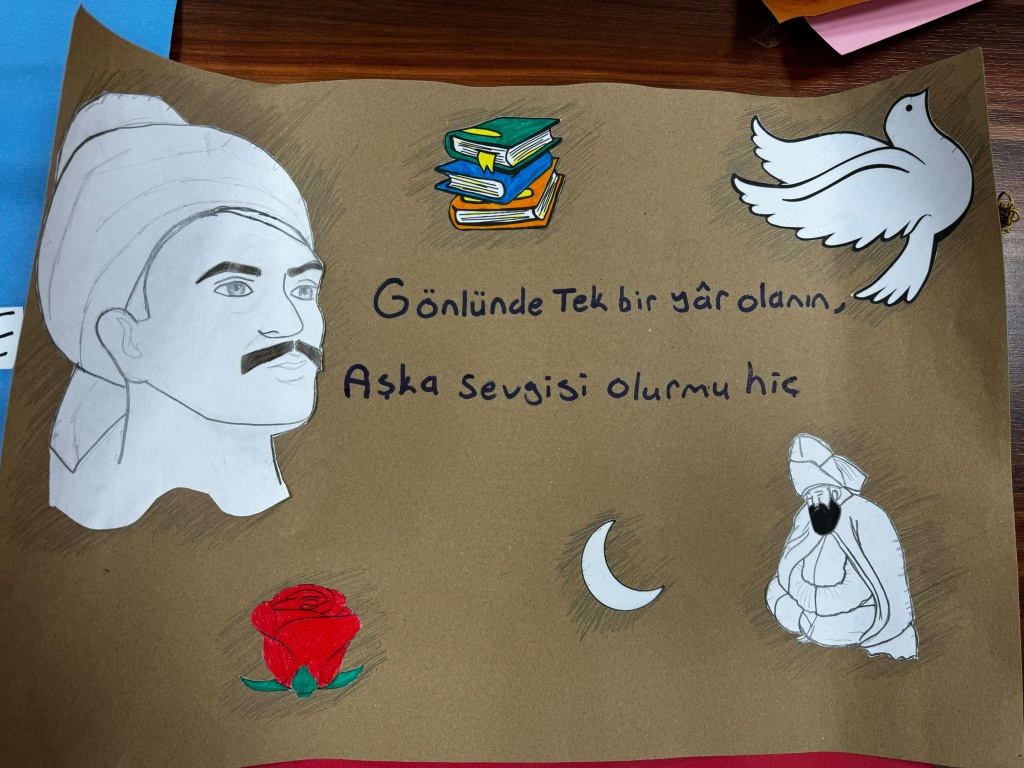 Gönlünde Tek bir yâr olanın,
Aşka Sevgisi olurmu hiç